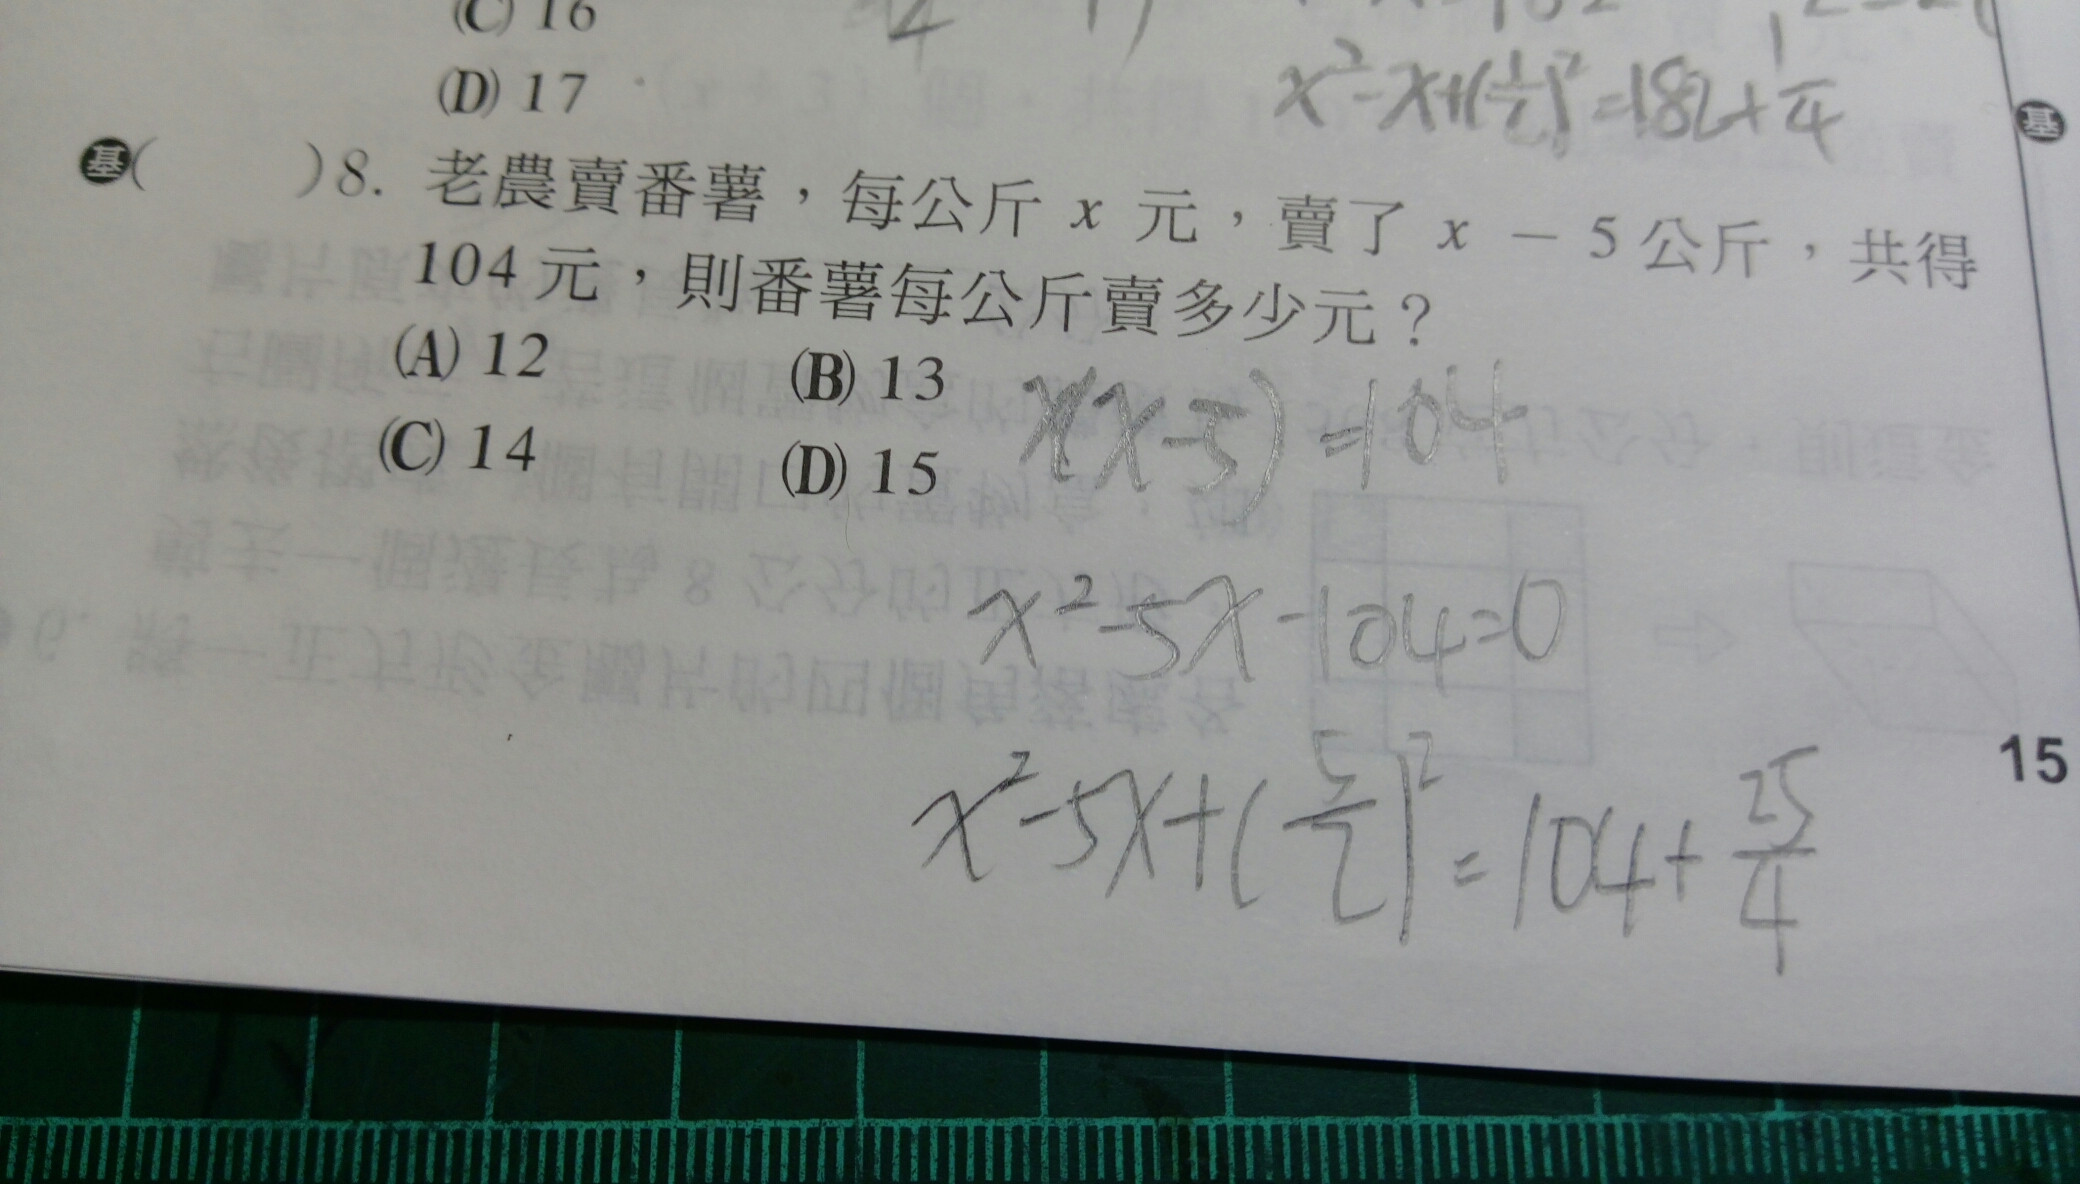 (C) 16
(D) 17
x²-x+(1/2)²=182+1/4
基( )8. 老農賣番薯，每公斤 x 元，賣了 x － 5 公斤，共得
基
104 元，則番薯每公斤賣多少元？
(A) 12 (B) 13
(C) 14 (D) 15
x(x-5)=104
x²-5x-104=0
x²-5x+(5/2)²=104+25/4
15